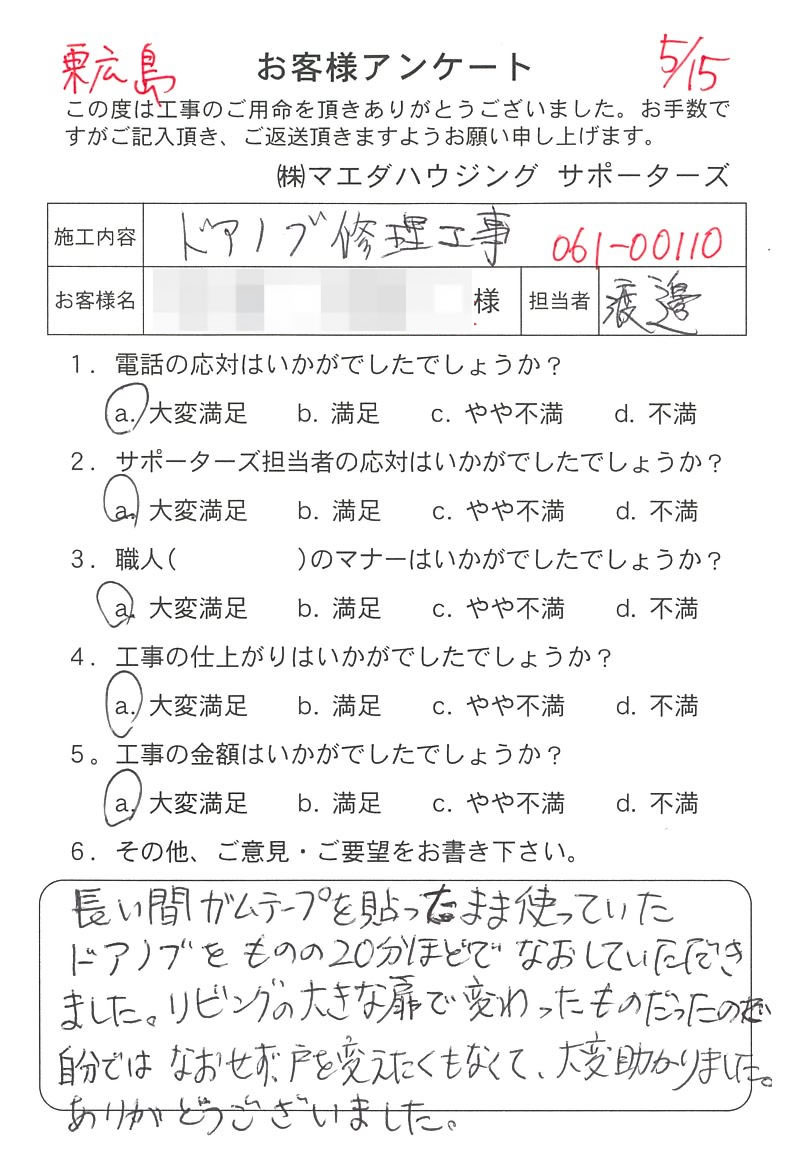 東広島 お客様アンケート 5/15
この度は工事のご用命を頂きありがとうございました。お手数で
すがご記入頂き、ご返送頂きますようお願い申し上げます。
㈱マエダハウジング サポーターズ
施工内容 ドアノブ修理工事 061-00110
お客様名 様 担当者 渡邊
1．電話の応対はいかがでしたでしょうか？
a. 大変満足 b. 満足 c. やや不満 d. 不満
2．サポーターズ担当者の応対はいかがでしたでしょうか？
a. 大変満足 b. 満足 c. やや不満 d. 不満
3．職人( )のマナーはいかがでしたでしょうか？
a. 大変満足 b. 満足 c. やや不満 d. 不満
4．工事の仕上がりはいかがでしたでしょうか？
a. 大変満足 b. 満足 c. やや不満 d. 不満
5。工事の金額はいかがでしたでしょうか？
a. 大変満足 b. 満足 c. やや不満 d. 不満
6．その他、ご意見・ご要望をお書き下さい。
長い間ガムテープを貼ったまま使っていた
ドアノブをものの20分ほどでなおしていただき
ました。リビングの大きな扉で変わったものだったので
自分ではなおせず、戸を変えたくもなくて、大変助かりました。
ありがどうございました。